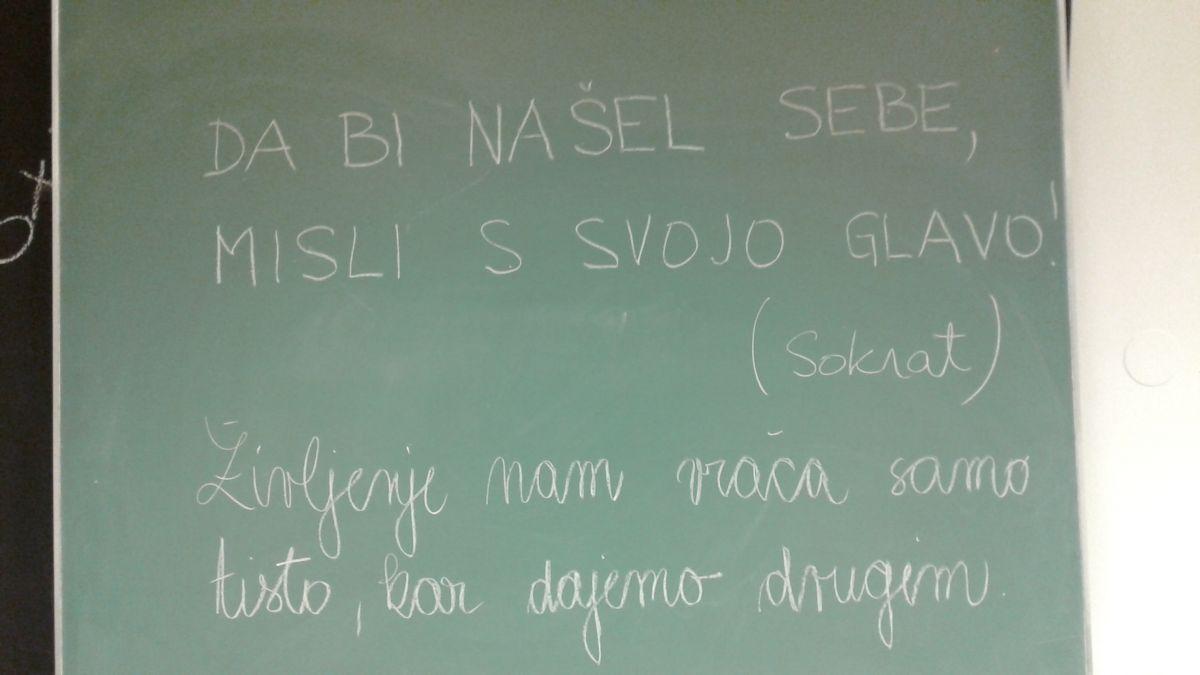 DA BI NAŠEL SEBE,
MISLI S SVOJO GLAVO!
(Sokrat)
Življenje nam vrača samo
tisto, kar dajemo drugim.